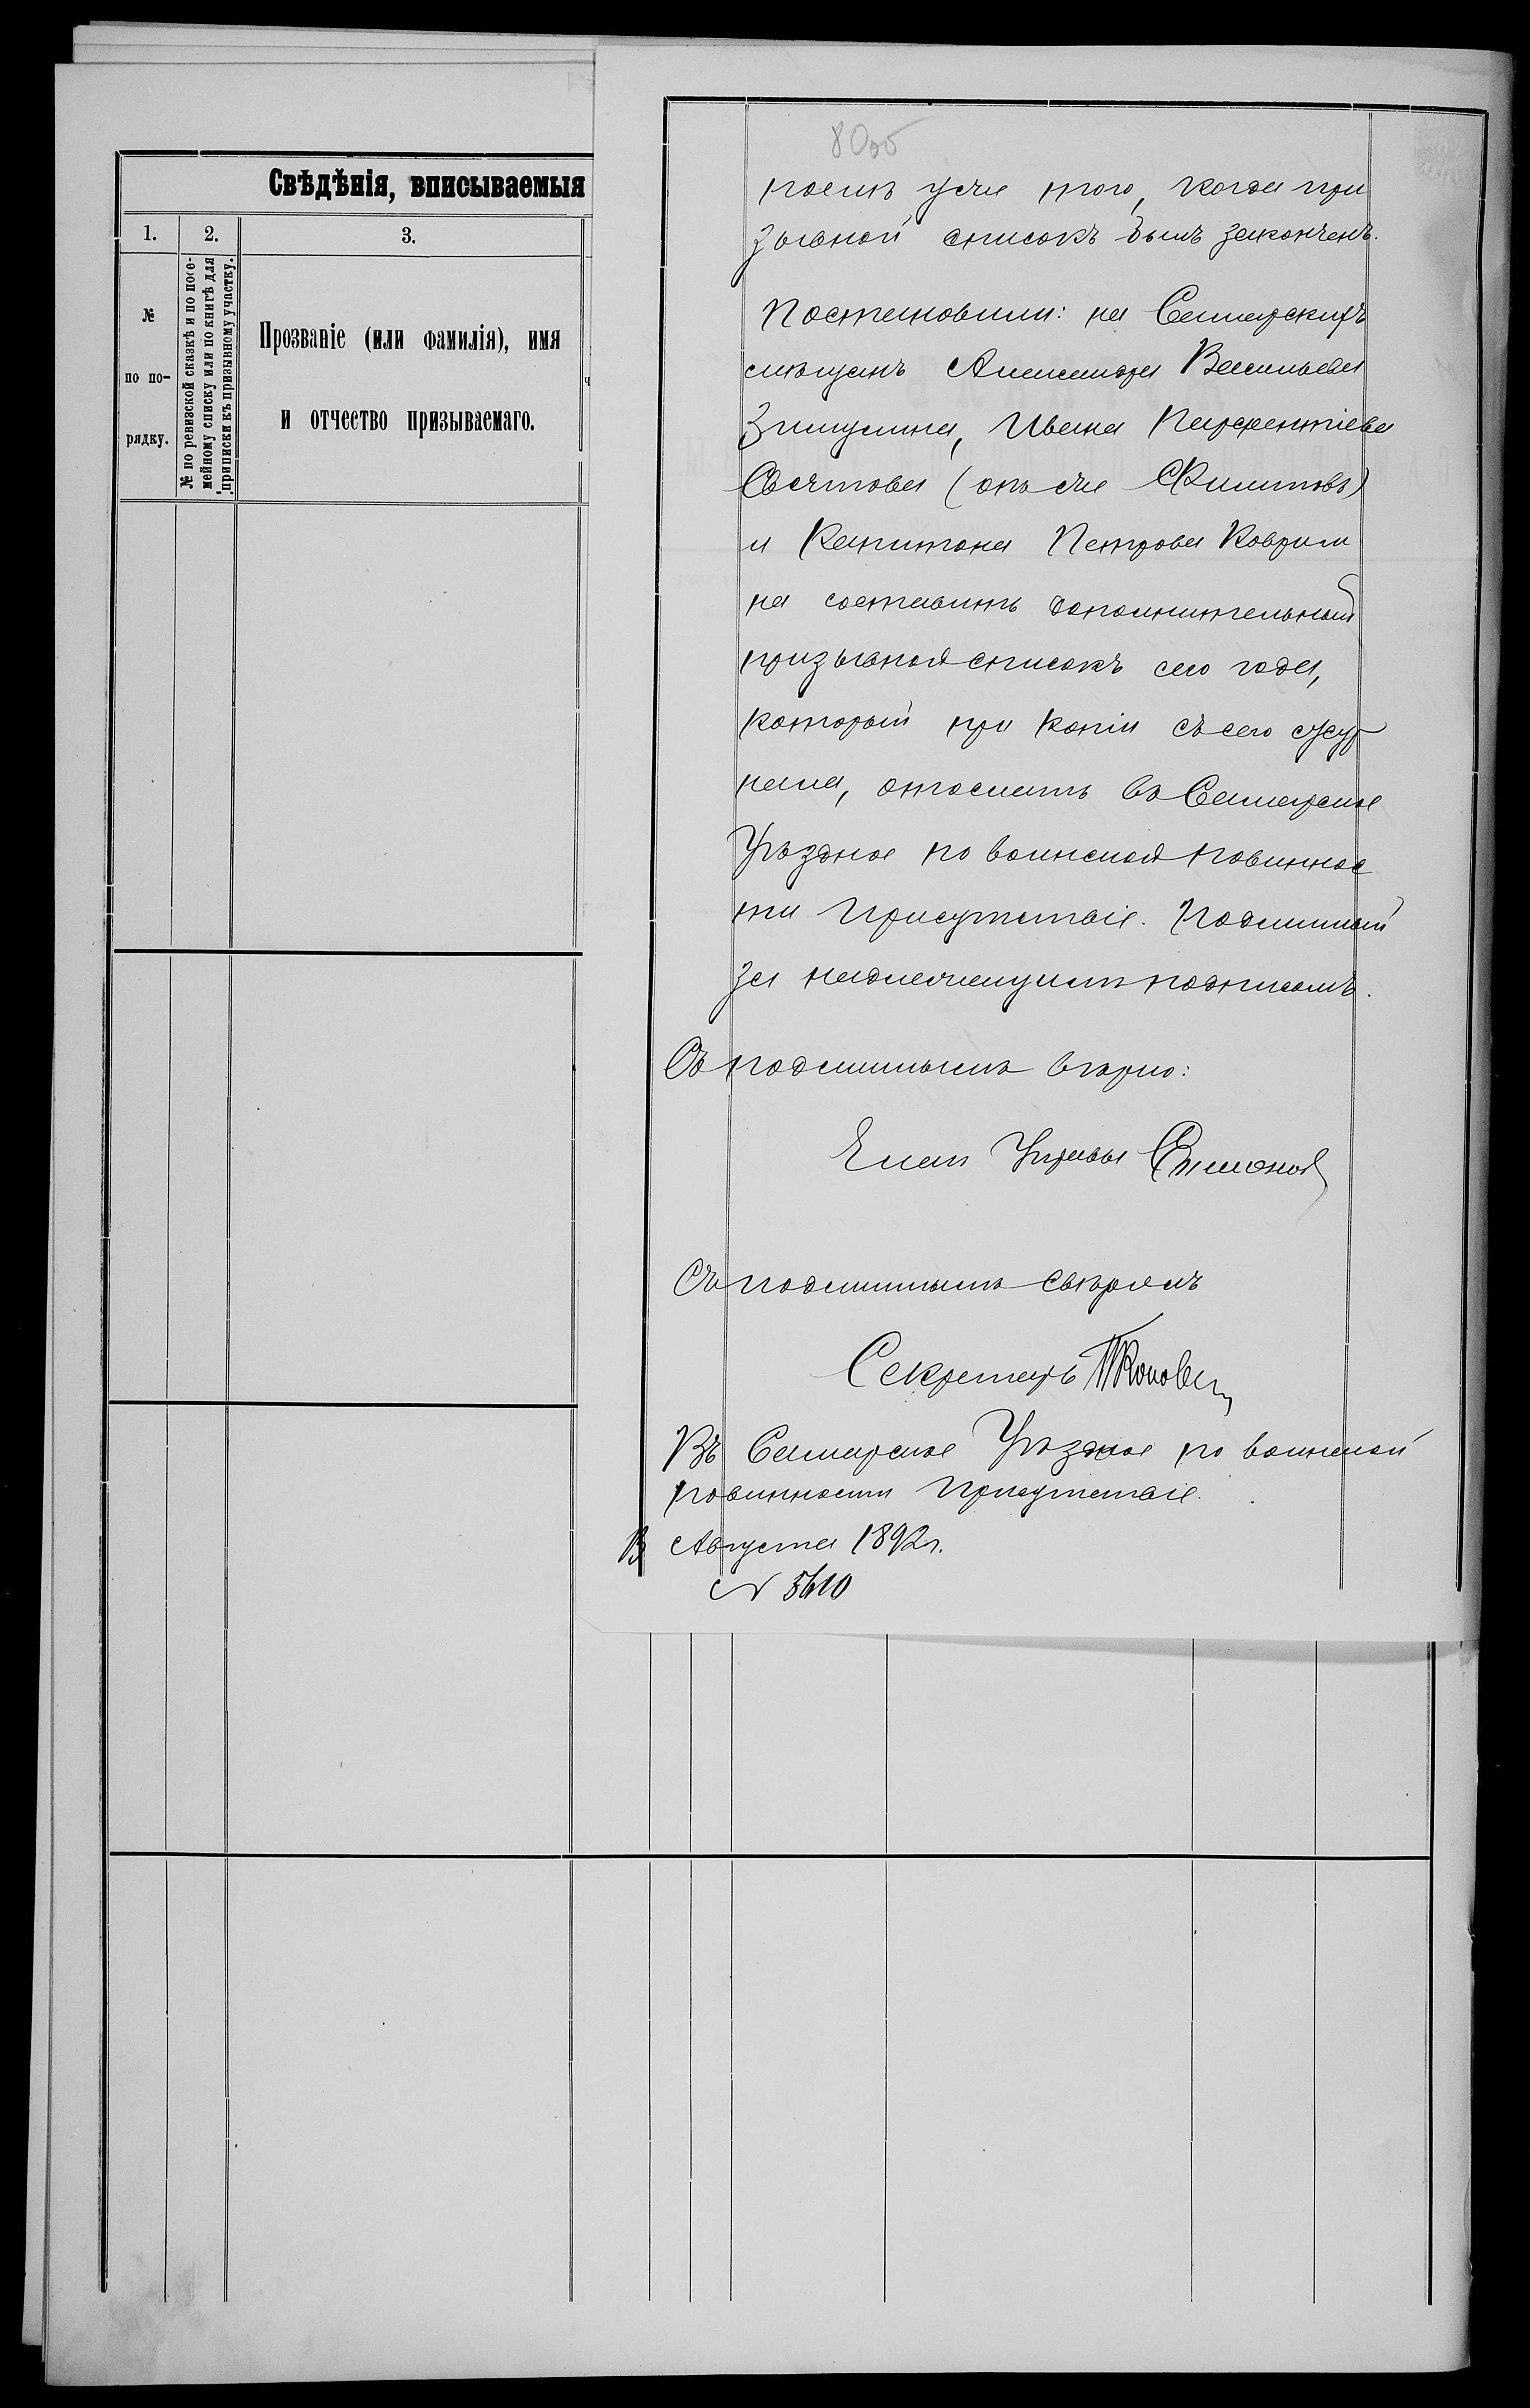 Свѣдѣнія, вписываемыя
1.
2.
3.
№
по по-
рядку.
№ по ревизской сказкѣ и по посе-
мейному списку или по книгѣ для
приписки къ призывному участку.
Прозваніе (или фамилія), имя
и отчество призываемаго.
80об
послѣ уже того, когда при
зывной списокъ былъ законченъ.
Постановили: на Самарскихъ
мѣщанъ Александра Васильева
Зимулина, Ивана Парфентіева
Святова (онъ же Филитовъ)
и Капитона Петрова Коврижи
на составить дополнительный
призывной списокъ сего года,
который при копіи съ сего жур
нала, отослать въ Самарское
Уѣздное по воинской повиннос
ти Присутствіе. Подлинный
за надлежащимъ подписомъ.
Съ подлиннымъ вѣрно:
Членъ Управы
Съ подлиннымъ свѣрялъ
Секретарь
Въ Самарское Уѣздное по воинской
повинности Присутствіе.
13 Августа 1892 г.
№ 5610